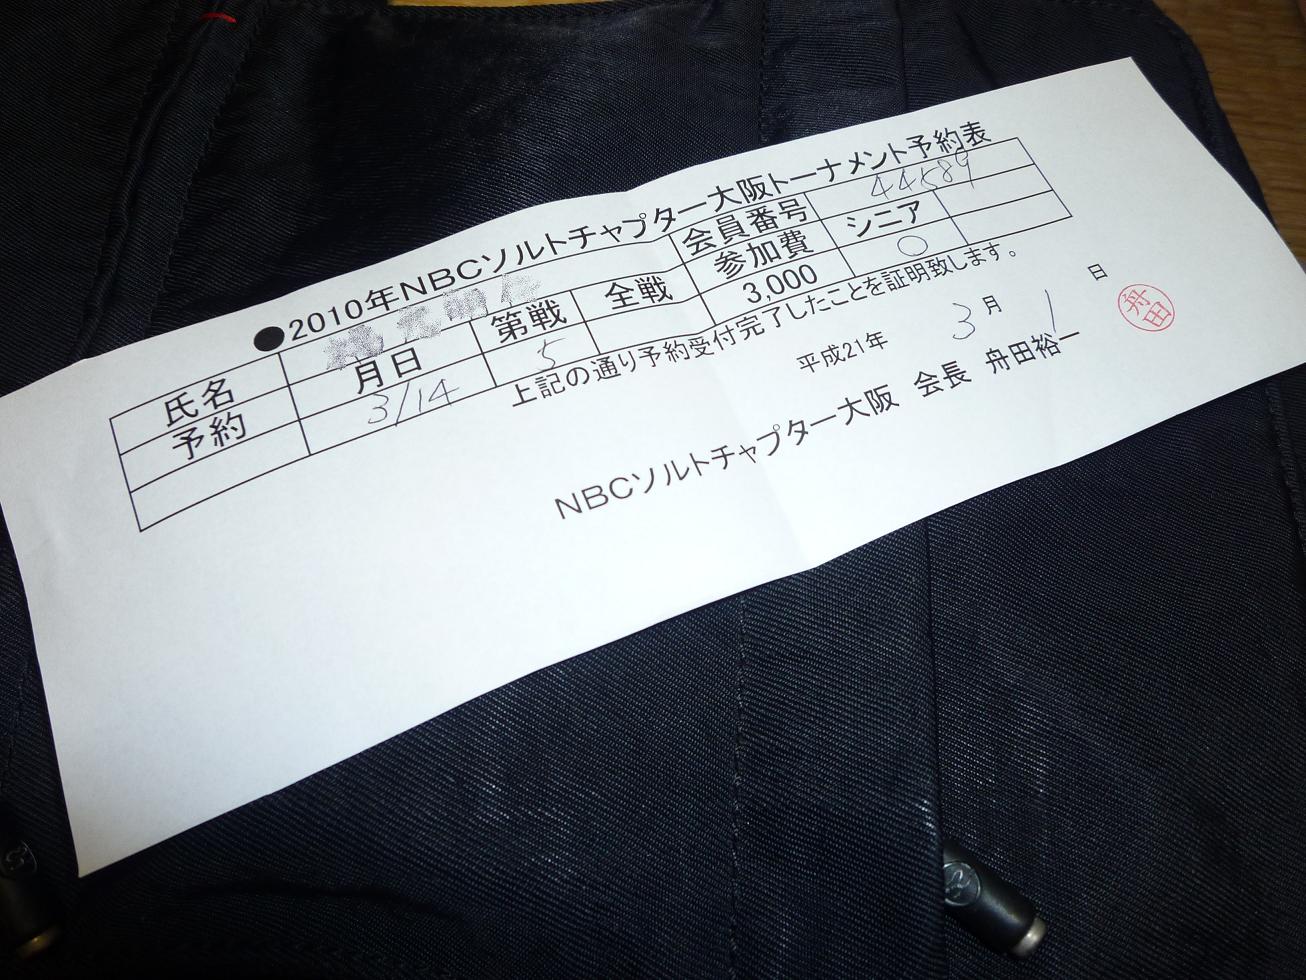 ●2010年NBCソルトチャプター大阪トーナメント予約表
氏名 会員番号 44589
予約 月日 第戦 全戦 参加費 シニア
3/14 5 3,000 ○
上記の通り予約受付完了したことを証明致します。
平成21年 3月 1日
NBCソルトチャプター大阪 会長 舟田裕一
舟田